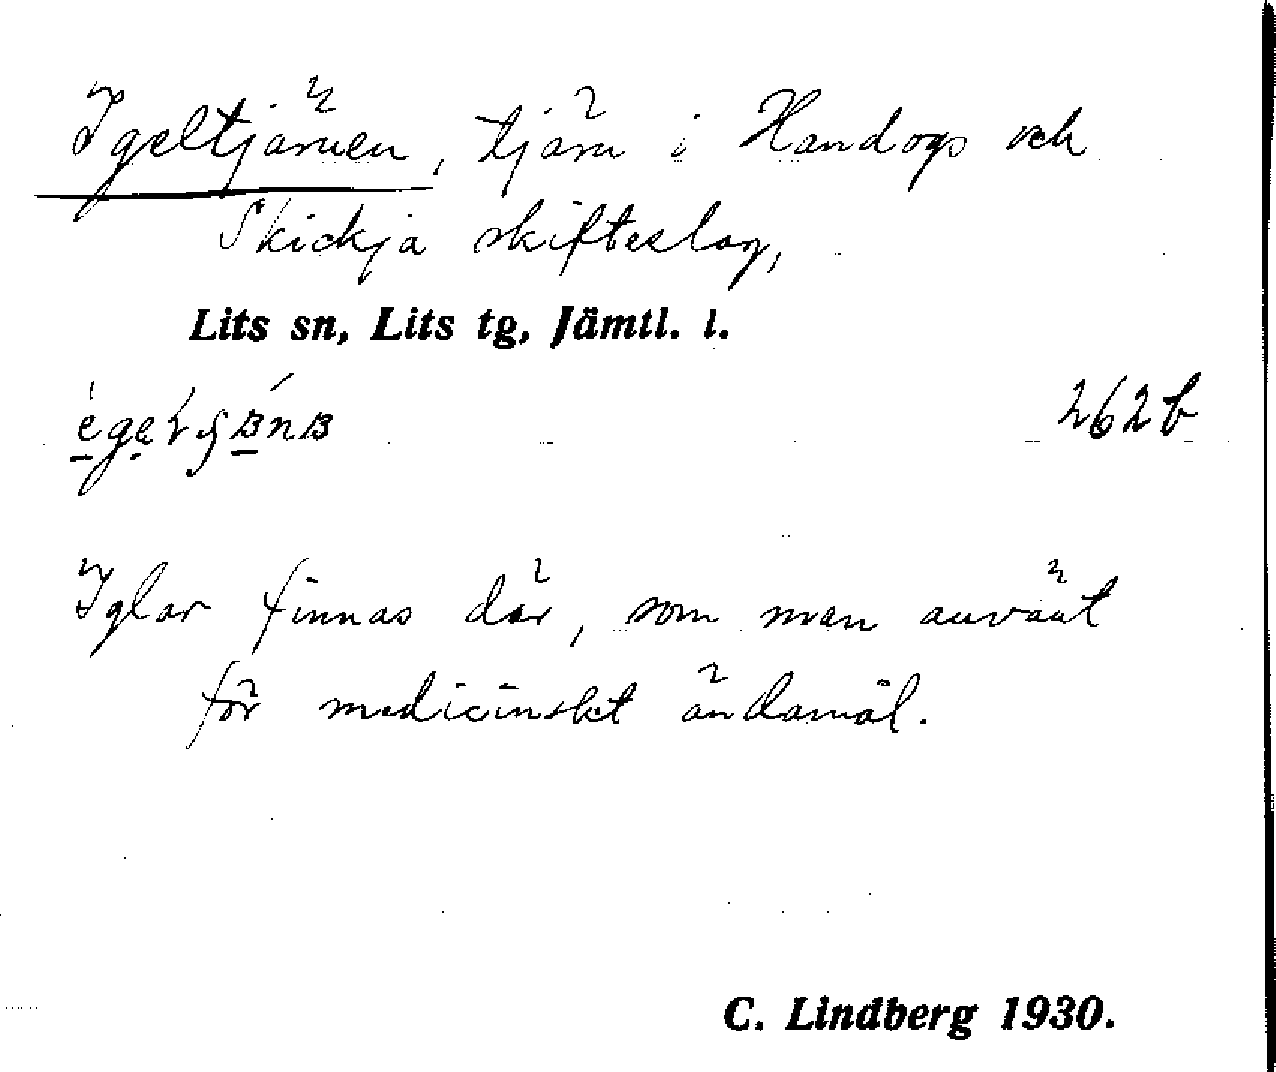 Igeltjärnen, tjärn i Handogs och
Skickja skifteslag,
Lits sn, Lits tg, Jämtl. l.
262 b
Iglar finnas där, som man använt
för medicinskt ändamål.
C. Lindberg 1930.